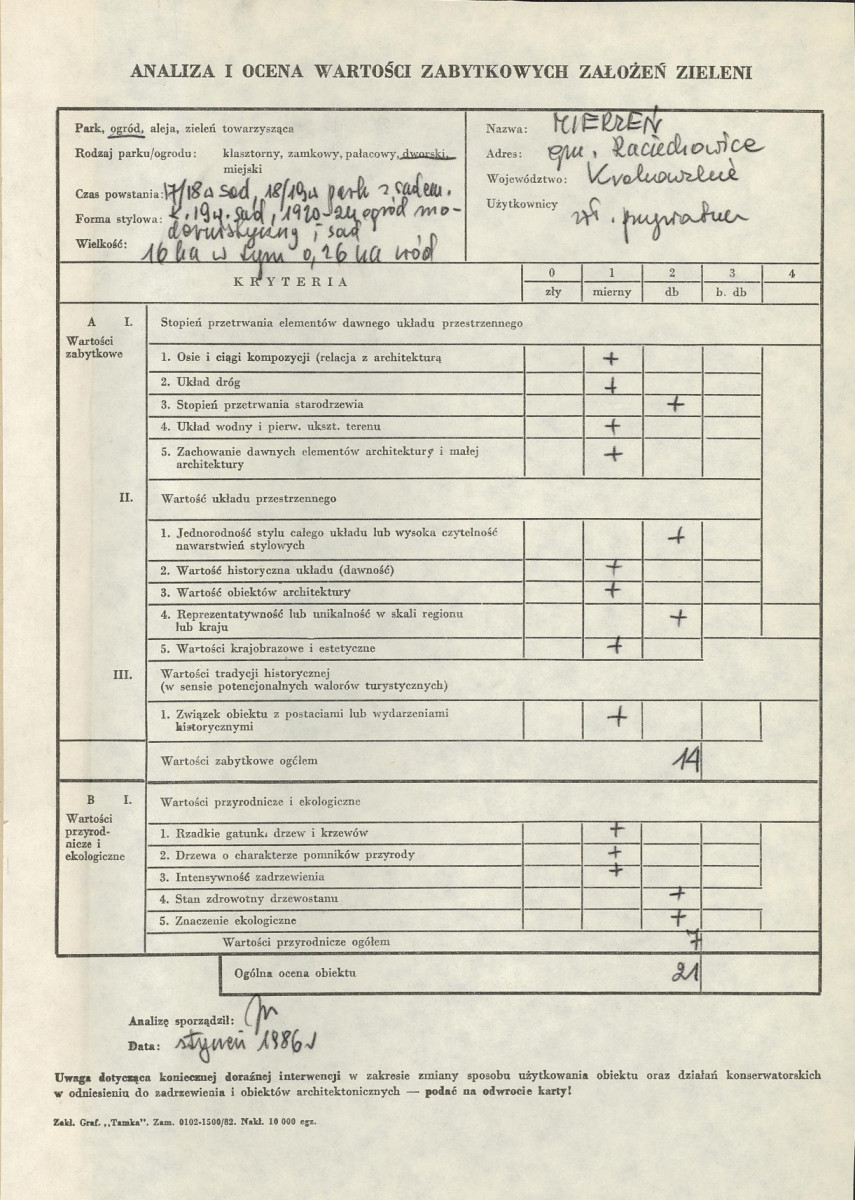 ANALIZA I OCENA WARTOŚCI ZABYTKOWYCH ZAŁOŻEŃ ZIELENI
Park, ogród, aleja, zieleń towarzysząca
Rodzaj parku/ogrodu: klasztorny, zamkowy, pałacowy, dworski,
miejski
Czas powstania: 17/18 sad, 18/19 park z sadem.
Forma stylowa: 19 w. sad, 1920-  ogród mo-
dernistyczny i sad
Wielkość: 16 ha w tym 0,26 ha wód
Nazwa: MIERZEŃ
Adres: gm. Raciechowice
Województwo: Krakowskie
Użytkownicy wł. prywatna
KRYTERIA
0 1 2 3 4
zły mierny db b. db
A I. Stopień przetrwania elementów dawnego układu przestrzennego
Wartości
zabytkowe
1. Osie i ciągi kompozycji (relacja z architekturą +
2. Układ dróg +
3. Stopień przetrwania starodrzewia +
4. Układ wodny i pierw. ukszt. terenu +
5. Zachowanie dawnych elementów architektury i małej
architektury +
II. Wartość układu przestrzennego
1. Jednorodność stylu całego układu lub wysoka czytelność
nawarstwień stylowych +
2. Wartość historyczna układu (dawność) +
3. Wartość obiektów architektury +
4. Reprezentatywność lub unikalność w skali regionu
lub kraju +
5. Wartości krajobrazowe i estetyczne +
III. Wartości tradycji historycznej
(w sensie potencjonalnych walorów turystycznych)
1. Związek obiektu z postaciami lub wydarzeniami
historycznymi +
Wartości zabytkowe ogółem 14
B I. Wartości przyrodnicze i ekologiczne
Wartości
przyrod-
nicze i
ekologiczne
1. Rzadkie gatunki drzew i krzewów +
2. Drzewa o charakterze pomników przyrody +
3. Intensywność zadrzewienia +
4. Stan zdrowotny drzewostanu +
5. Znaczenie ekologiczne +
Wartości przyrodnicze ogółem 7
Ogólna ocena obiektu 21
Analizę sporządził:
Data: styczeń 1986
Uwaga dotycząca koniecznej doraźnej interwencji w zakresie zmiany sposobu użytkowania obiektu oraz działań konserwatorskich
w odniesieniu do zadrzewienia i obiektów architektonicznych — podać na odwrocie karty!
Zakł. Graf. „Tamka”. Zam. 0102-1500/82. Nakł. 10 000 egz.